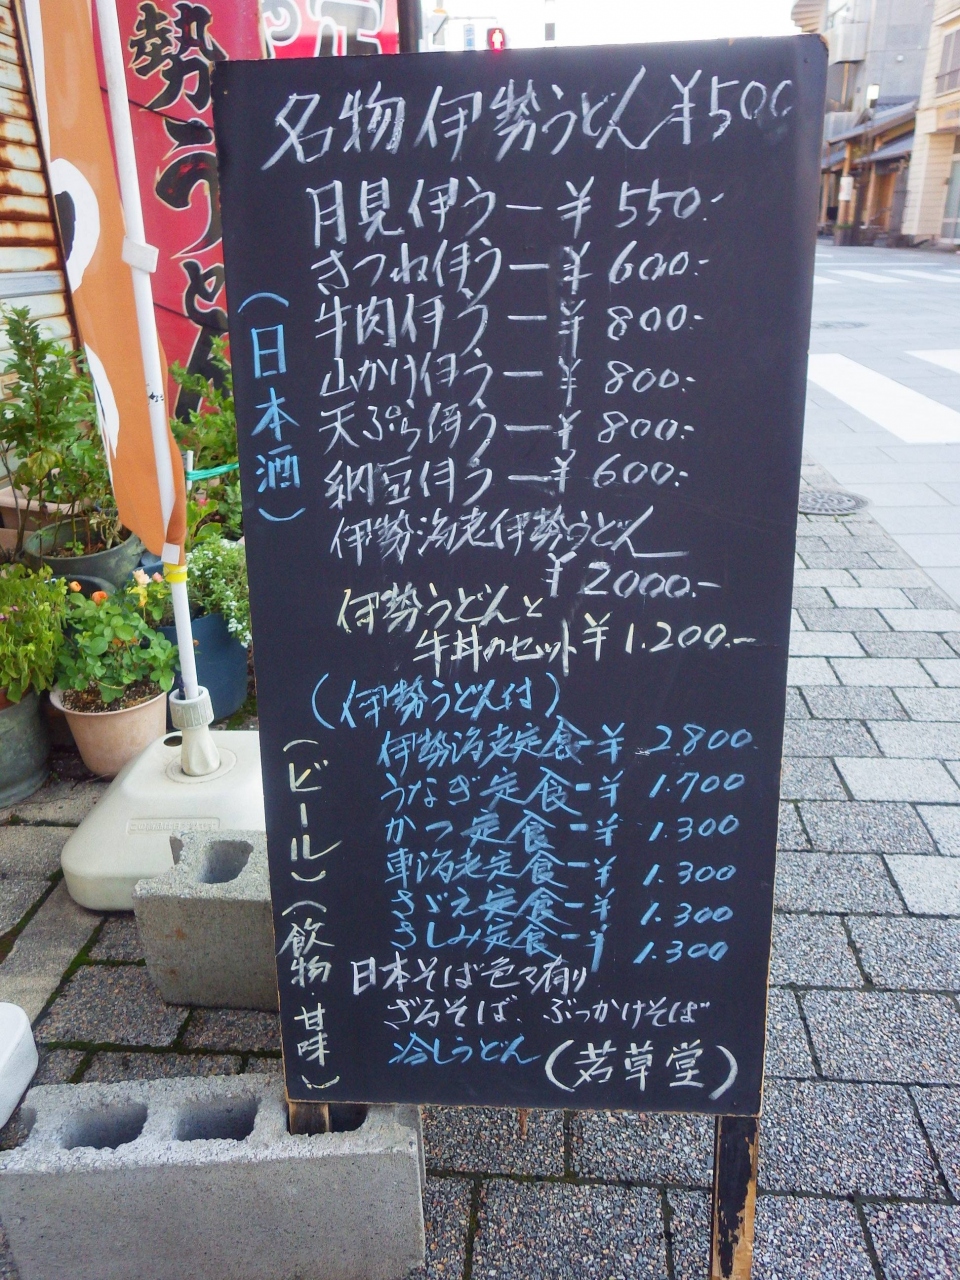 勢うどん
名物伊勢うどん¥500
月見伊うー¥550.-
きつね伊うー¥600.-
牛肉伊うー¥800.-
山かけ伊うー¥800.-
天ぷら伊うー¥800.-
納豆伊うー¥600.-
伊勢海老伊勢うどん
¥2000.-
伊勢うどんと
牛丼のセット¥1.200.-
(伊勢うどん付)
伊勢海老定食-¥2.800
うなぎ定食-¥1.700
かつ定食-¥1.300
車海老定食-¥1.300
さざえ定食-¥1.300
さしみ定食-¥1.300
日本そば色々有り
ざるそば、ぶっかけそば
冷しうどん
(若草堂)
(日本酒)
(ビール)
(飲物 甘味)